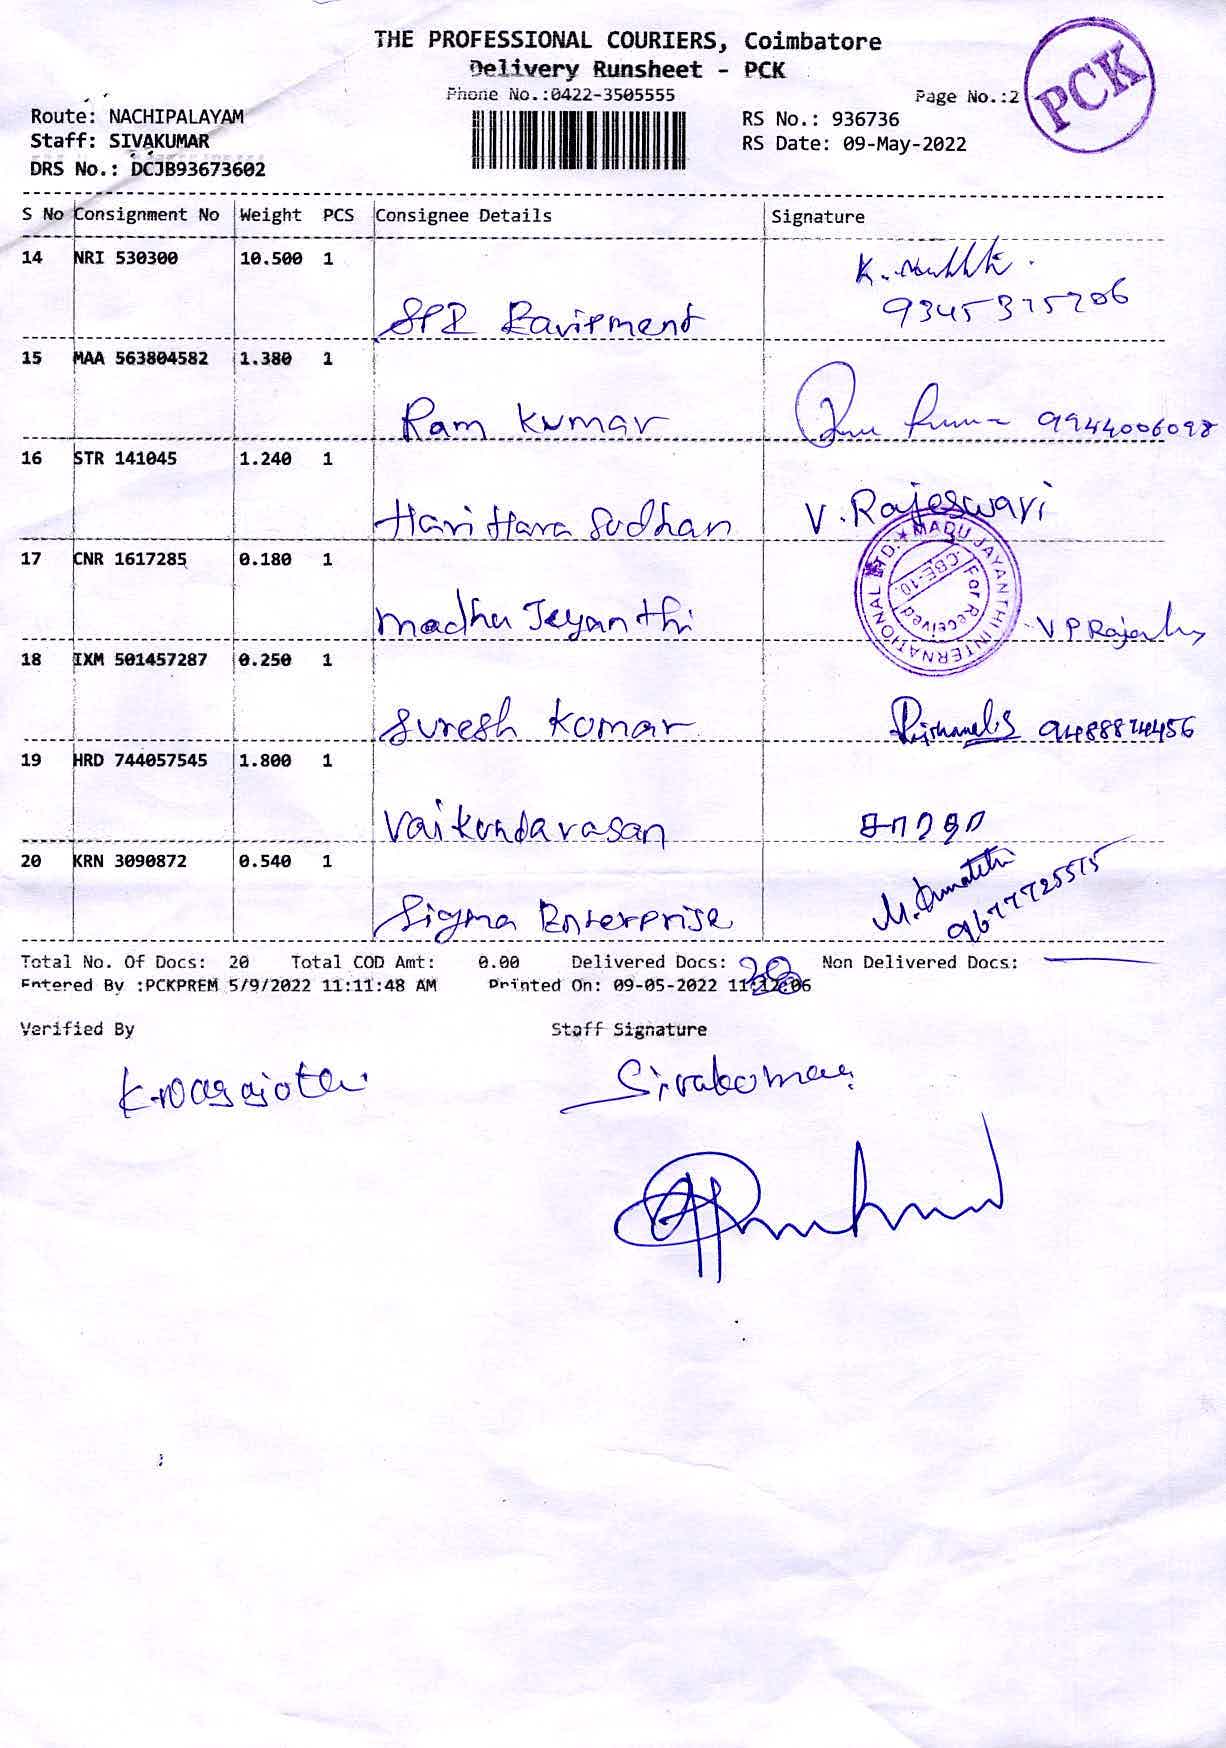 THE PROFESSIONAL COURIERS, Coimbatore
Delivery Runsheet - PCK
Phone No.:0422-3505555
Page No.:2
PCK
Route: NACHIPALAYAM
RS No.: 936736
Staff: SIVAKUMAR
RS Date: 09-May-2022
DRS No.: DCJB93673602
S No Consignment No Weight PCS Consignee Details Signature
14 NRI 530300 10.500 1
K.
SPI
15 MAA 563804582 1.380 1
Ram Kumar 9944006098
16 STR 141045 1.240 1
Hari Hara Sudhan V. Rajeswari
17 CNR 1617285 0.180 1
MADU JAYANTHI INTERNATIONAL LTD. ★
For Received
CBE-10.
Madhu Jeyanthi
18 IXM 501457287 0.250 1
Suresh Kumar
19 HRD 744057545 1.800 1
Vaikundavasan
20 KRN 3090872 0.540 1
Sigma Enterprise 9677725515
Total No. Of Docs: 20 Total COD Amt: 0.00 Delivered Docs: 20 Non Delivered Docs:
Entered By :PCKPREM 5/9/2022 11:11:48 AM Printed On: 09-05-2022 11:12:06
Verified By Staff Signature
Sivakumar